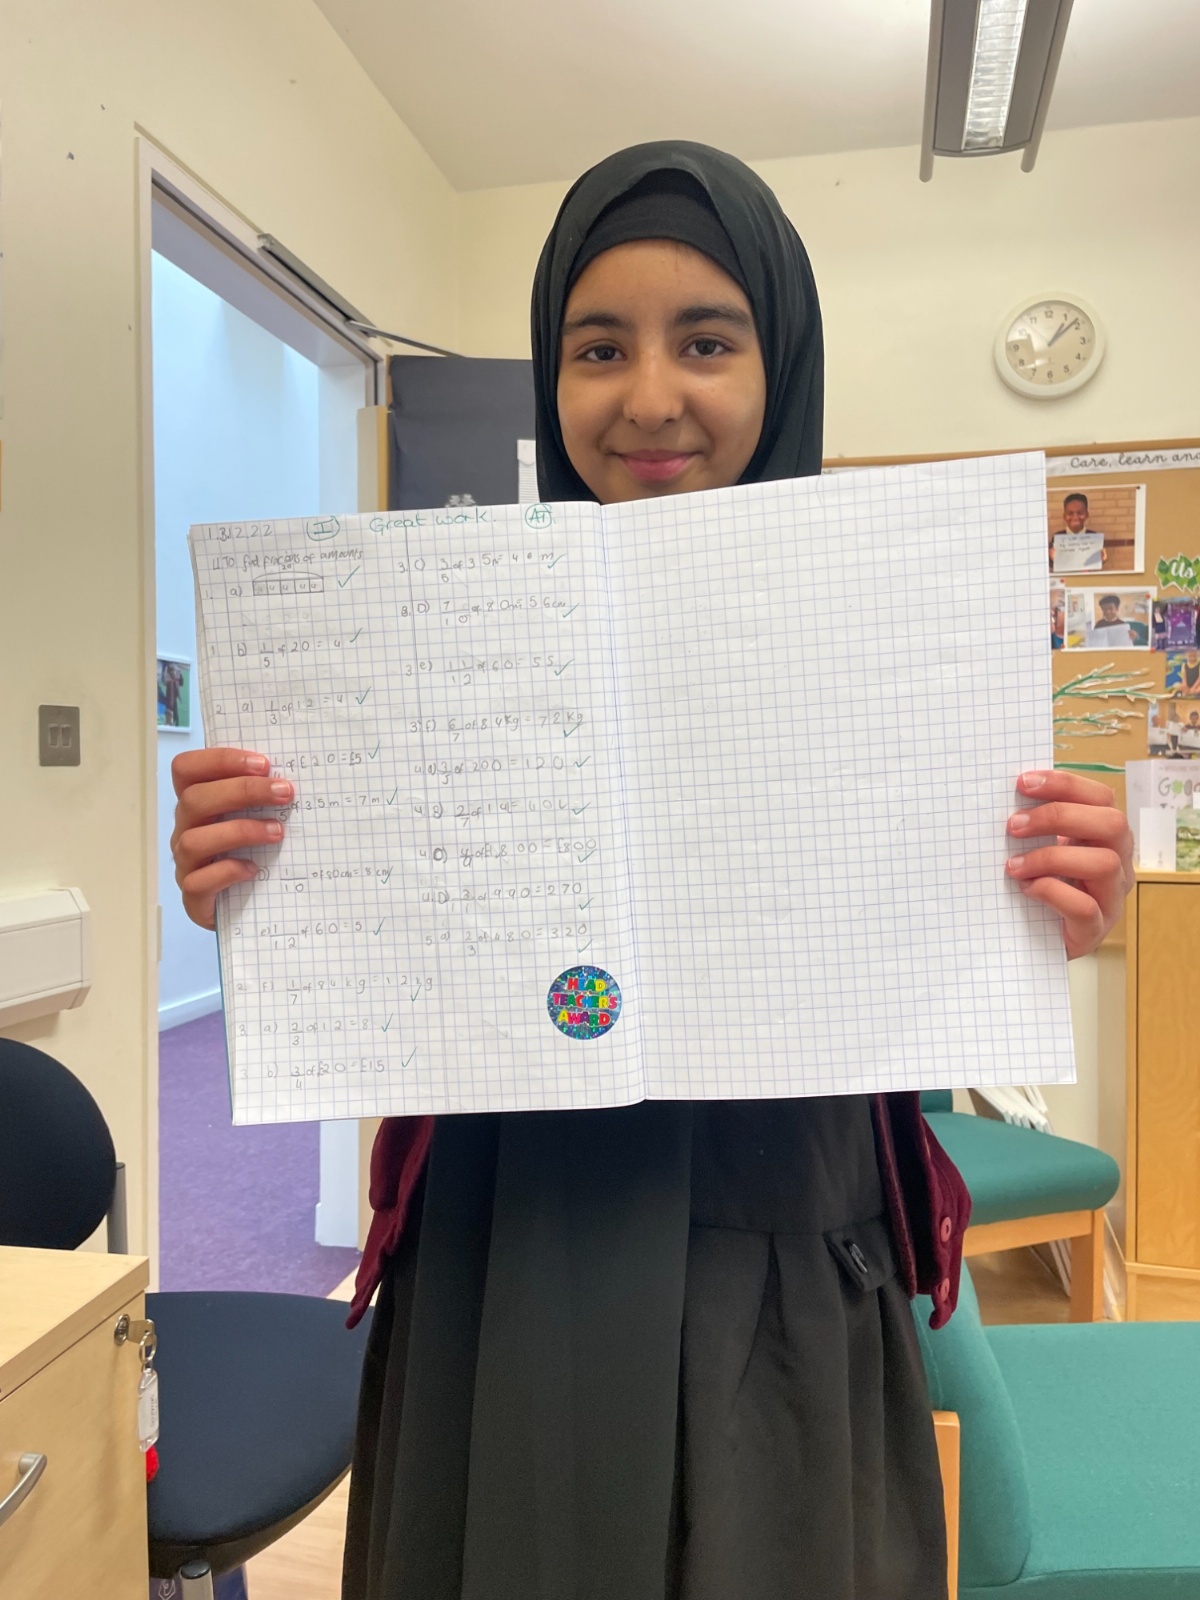 1.3.12.22 I Great work. AT
LI To find fractions of amounts
20
1. a) 4 4 4 4 4
1 b) 1/5 of 20 = 4
2 a) 1/3 of 12 = 4
1/4 of £20 = £5
1/5 of 35m = 7m
D) 1/10 of 80cm = 8cm
2 e) 1/12 of 60 = 5
2 f) 1/7 of 84kg = 12kg
3 a) 2/3 of 12 = 8
3 b) 3/4 of £20 = £15
3 c)
3 D) 7/10 of 80 56cm
3 e) 11/12 of 60 = 55
3 f) 6/7 of 84kg = 72kg
4 a) 3/5 of 200 = 120
4 B) 2/7 of
4 C) = £800
4 D) 3/11 of 990 = 270
5 a) 2/3 of 480 = 320
HEAD
TEACHER'S
AWARD
Care, learn and
Us